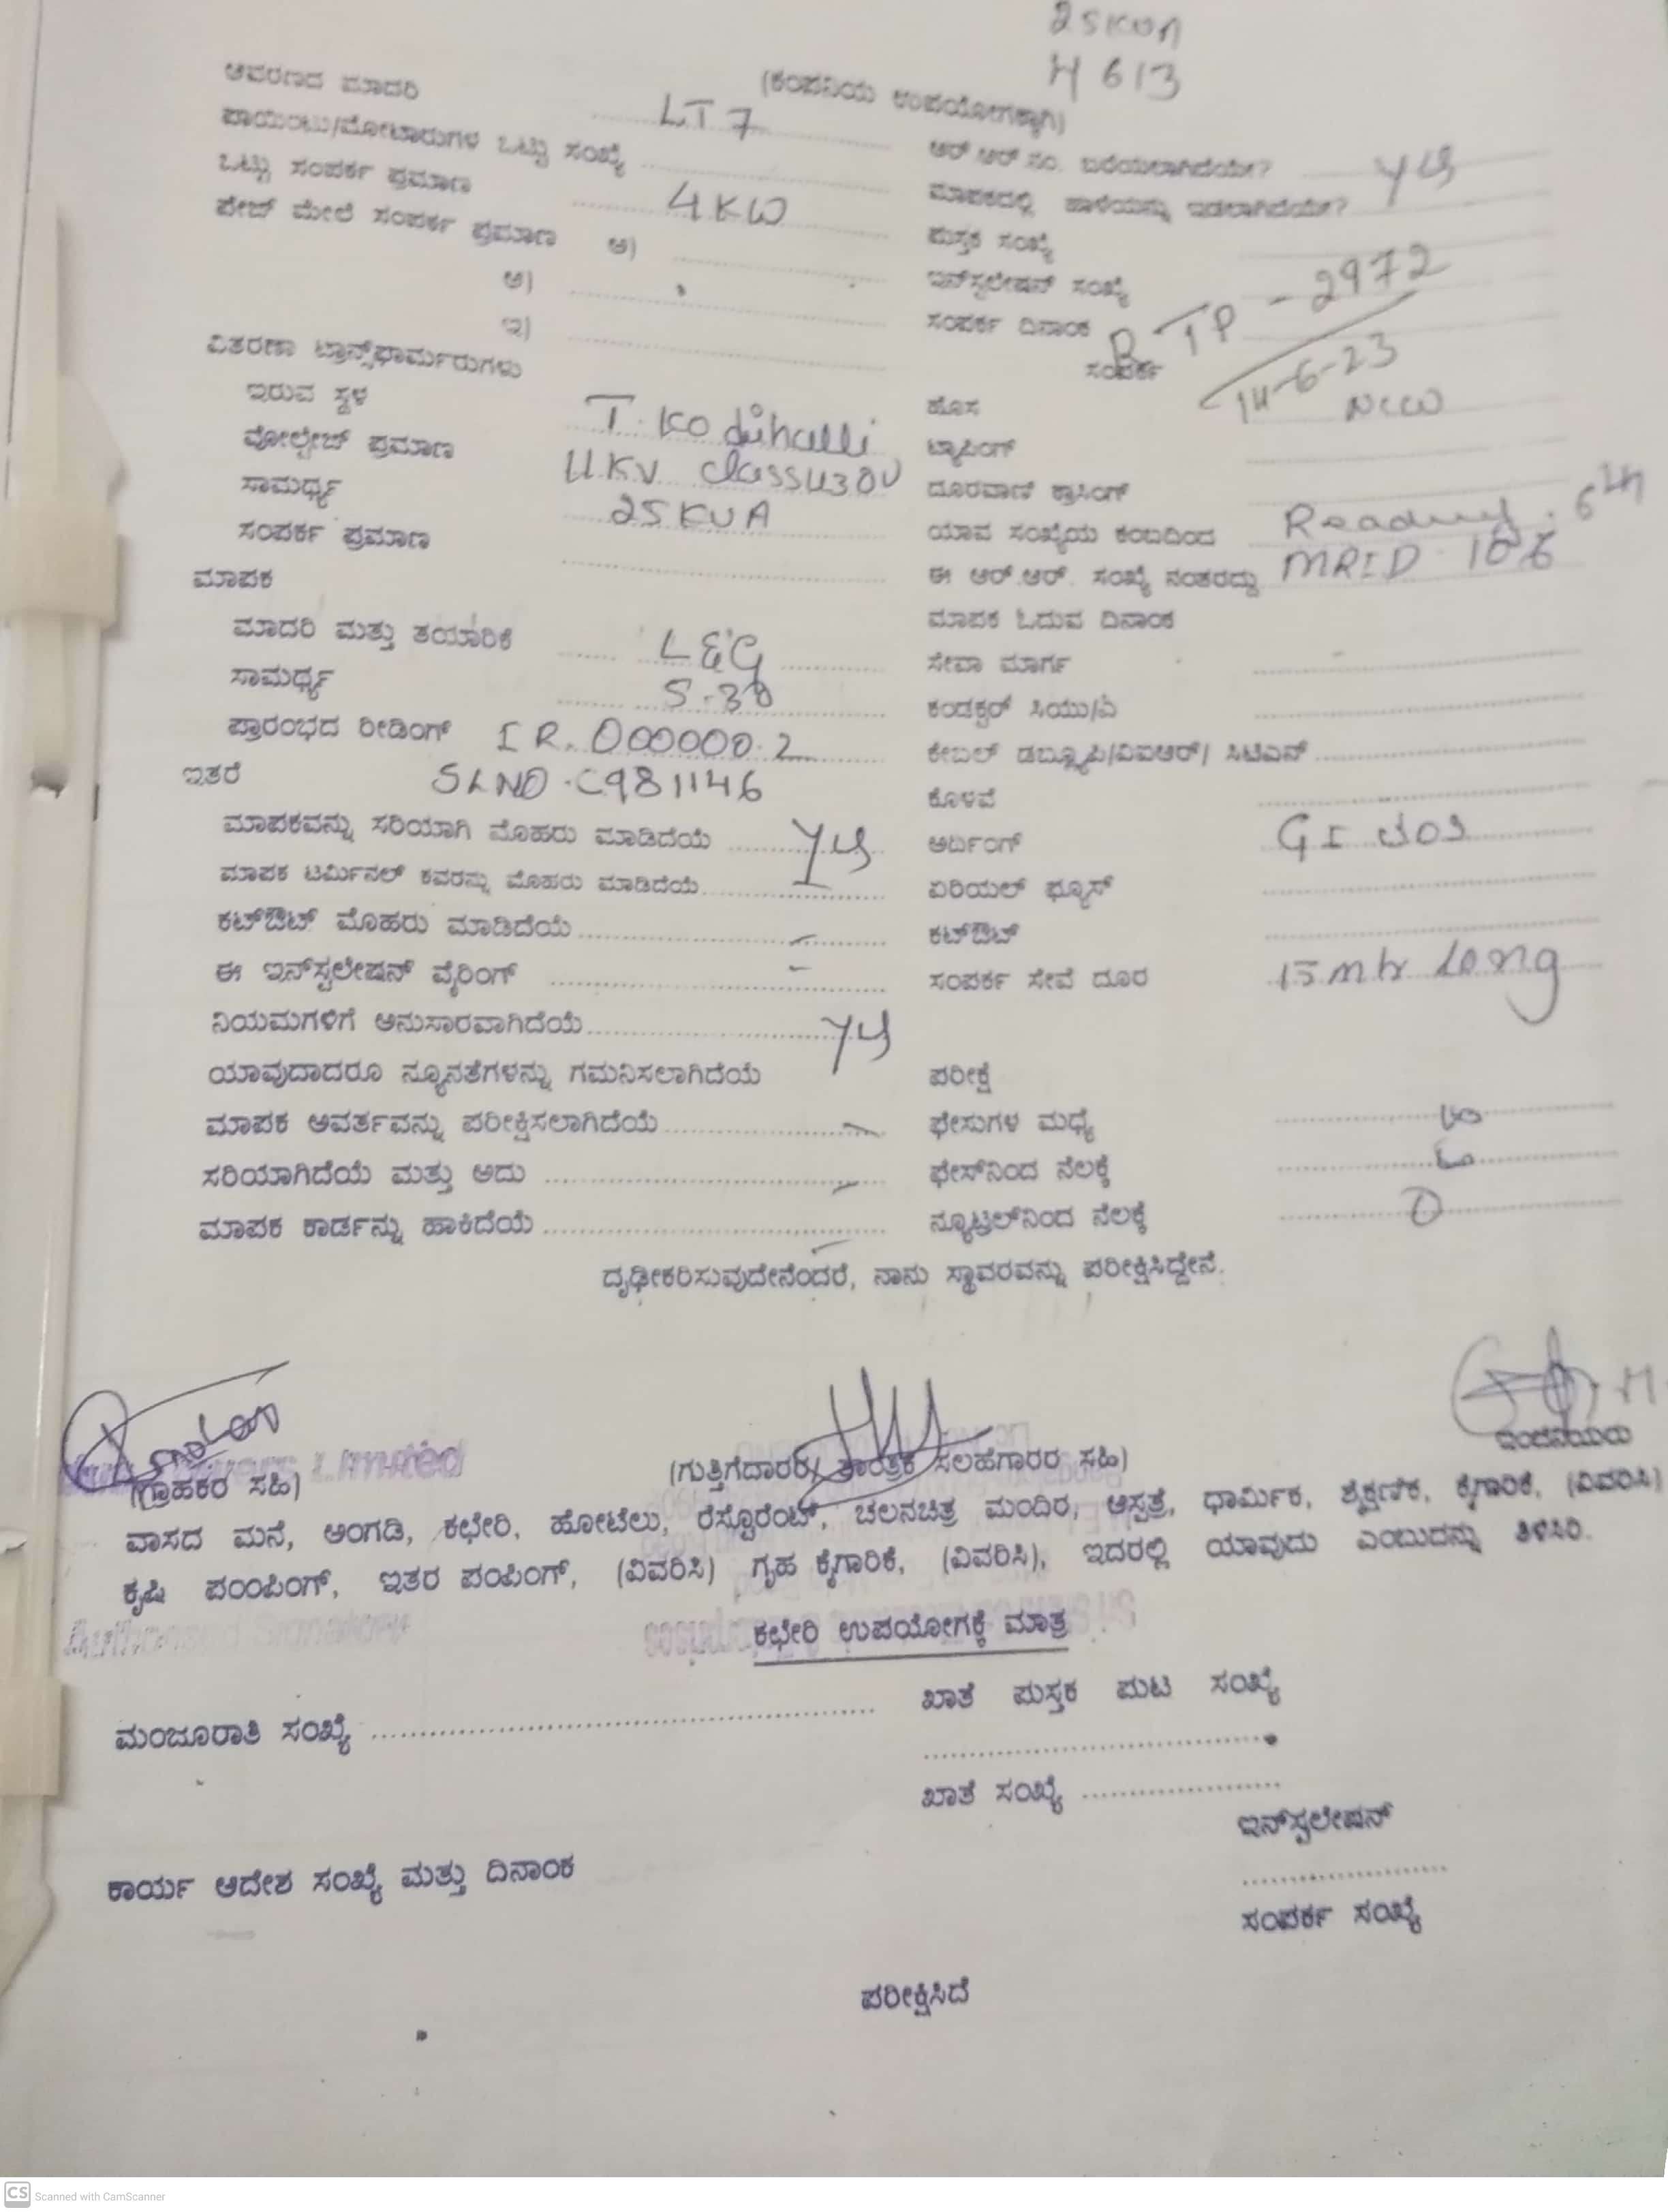 25KVA
H 613
(ಕಂಪನಿಯ ಉಪಯೋಗಕ್ಕಾಗಿ)
ಆವರಣದ ಮಾದರಿ LT 7
ಪಾಯಿಂಟು/ಮೋಟಾರುಗಳ ಒಟ್ಟು ಸಂಖ್ಯೆ
ಒಟ್ಟು ಸಂಪರ್ಕ ಪ್ರಮಾಣ 4 KW
ಪೇಜ್ ಮೇಲೆ ಸಂಪರ್ಕ ಪ್ರಮಾಣ ಅ)
ಆ)
ಇ)
ವಿತರಣಾ ಟ್ರಾನ್ಸ್‌ಫಾರ್ಮರುಗಳು
ಇರುವ ಸ್ಥಳ T. Kodihalli
ವೋಲ್ಟೇಜ್ ಪ್ರಮಾಣ 11KV class
ಸಾಮರ್ಥ್ಯ 25KVA
ಸಂಪರ್ಕ ಪ್ರಮಾಣ
ಮಾಪಕ
ಮಾದರಿ ಮತ್ತು ತಯಾರಿಕೆ L&G
ಸಾಮರ್ಥ್ಯ 5-30
ಪ್ರಾರಂಭದ ರೀಡಿಂಗ್ IR. 000000.2
ಇತರೆ SLNO. C981146
ಮಾಪಕವನ್ನು ಸರಿಯಾಗಿ ಮೊಹರು ಮಾಡಿದೆಯೆ yes
ಮಾಪಕ ಟರ್ಮಿನಲ್ ಕವರನ್ನು ಮೊಹರು ಮಾಡಿದೆಯೆ
ಕಟ್‌ಔಟ್ ಮೊಹರು ಮಾಡಿದೆಯೆ
ಈ ಇನ್‌ಸ್ಟಲೇಷನ್ ವೈರಿಂಗ್
ನಿಯಮಗಳಿಗೆ ಅನುಸಾರವಾಗಿದೆಯೆ yes
ಯಾವುದಾದರೂ ನ್ಯೂನತೆಗಳನ್ನು ಗಮನಿಸಲಾಗಿದೆಯೆ
ಮಾಪಕ ಅವರ್ತವನ್ನು ಪರೀಕ್ಷಿಸಲಾಗಿದೆಯೆ
ಸರಿಯಾಗಿದೆಯೆ ಮತ್ತು ಅದು
ಮಾಪಕ ಕಾರ್ಡನ್ನು ಹಾಕಿದೆಯೆ
ಆರ್.ಆರ್.ಸಂ. ಬರೆಯಲಾಗಿದೆಯೇ? yes
ಮಾಪಕದಲ್ಲಿ ಹಾಳೆಯನ್ನು ಇಡಲಾಗಿದೆಯೇ?
ಪುಸ್ತಕ ಸಂಖ್ಯೆ
ಇನ್‌ಸ್ಟಲೇಷನ್ ಸಂಖ್ಯೆ
ಸಂಪರ್ಕ ದಿನಾಂಕ TP - 2972
ಸಂಪರ್ಕ 14-6-23
ಹೊಸ New
ಟ್ಯಾಪಿಂಗ್
ದೂರವಾಣಿ ಕ್ರಾಸಿಂಗ್
ಯಾವ ಸಂಖ್ಯೆಯ ಕಂಬದಿಂದ Reading. 6th
ಈ ಆರ್.ಆರ್. ಸಂಖ್ಯೆ ನಂತರದ್ದು MRID
ಮಾಪಕ ಓದುವ ದಿನಾಂಕ
ಸೇವಾ ಮಾರ್ಗ
ಕಂಡಕ್ಟರ್ ಸಿಯು/ಎ
ಕೇಬಲ್ ಡಬ್ಲ್ಯೂಪಿ/ವಿಐಆರ್/ ಸಿಟಿಎನ್
ಕೊಳವೆ
ಅರ್ದಿಂಗ್ GI
ಏರಿಯಲ್ ಫ್ಯೂಸ್
ಕಟ್‌ಔಟ್
ಸಂಪರ್ಕ ಸೇವೆ ದೂರ 15 mtr long
ಪರೀಕ್ಷೆ
ಫೇಸುಗಳ ಮಧ್ಯೆ
ಫೇಸ್‌ನಿಂದ ನೆಲಕ್ಕೆ
ನ್ಯೂಟ್ರಲ್‌ನಿಂದ ನೆಲಕ್ಕೆ 0
ದೃಢೀಕರಿಸುವುದೇನೆಂದರೆ, ನಾನು ಸ್ಥಾವರವನ್ನು ಪರೀಕ್ಷಿಸಿದ್ದೇನೆ.
Limited
(ಗ್ರಾಹಕರ ಸಹಿ) (ಗುತ್ತಿಗೆದಾರರ/ ತಾಂತ್ರಿಕ ಸಲಹೆಗಾರರ ಸಹಿ) ಇಂಜಿನಿಯರು
ವಾಸದ ಮನೆ, ಅಂಗಡಿ, ಕಛೇರಿ, ಹೋಟೆಲು, ರೆಸ್ಟೊರೆಂಟ್, ಚಲನಚಿತ್ರ ಮಂದಿರ, ಆಸ್ಪತ್ರೆ, ಧಾರ್ಮಿಕ, ಶೈಕ್ಷಣಿಕ, ಕೈಗಾರಿಕೆ, (ವಿವರಿಸಿ)
ಕೃಷಿ ಪಂಂಪಿಂಗ್, ಇತರ ಪಂಪಿಂಗ್, (ವಿವರಿಸಿ) ಗೃಹ ಕೈಗಾರಿಕೆ, (ವಿವರಿಸಿ), ಇದರಲ್ಲಿ ಯಾವುದು ಎಂಬುದನ್ನು ತಿಳಿಸಿರಿ.
Authorised Signatory
ಕಛೇರಿ ಉಪಯೋಗಕ್ಕೆ ಮಾತ್ರ
ಮಂಜೂರಾತಿ ಸಂಖ್ಯೆ
ಖಾತೆ ಪುಸ್ತಕ ಪುಟ ಸಂಖ್ಯೆ
ಖಾತೆ ಸಂಖ್ಯೆ
ಇನ್‌ಸ್ಟಲೇಷನ್
ಕಾರ್ಯ ಆದೇಶ ಸಂಖ್ಯೆ ಮತ್ತು ದಿನಾಂಕ
ಸಂಪರ್ಕ ಸಂಖ್ಯೆ
ಪರೀಕ್ಷಿಸಿದೆ
CS Scanned with CamScanner